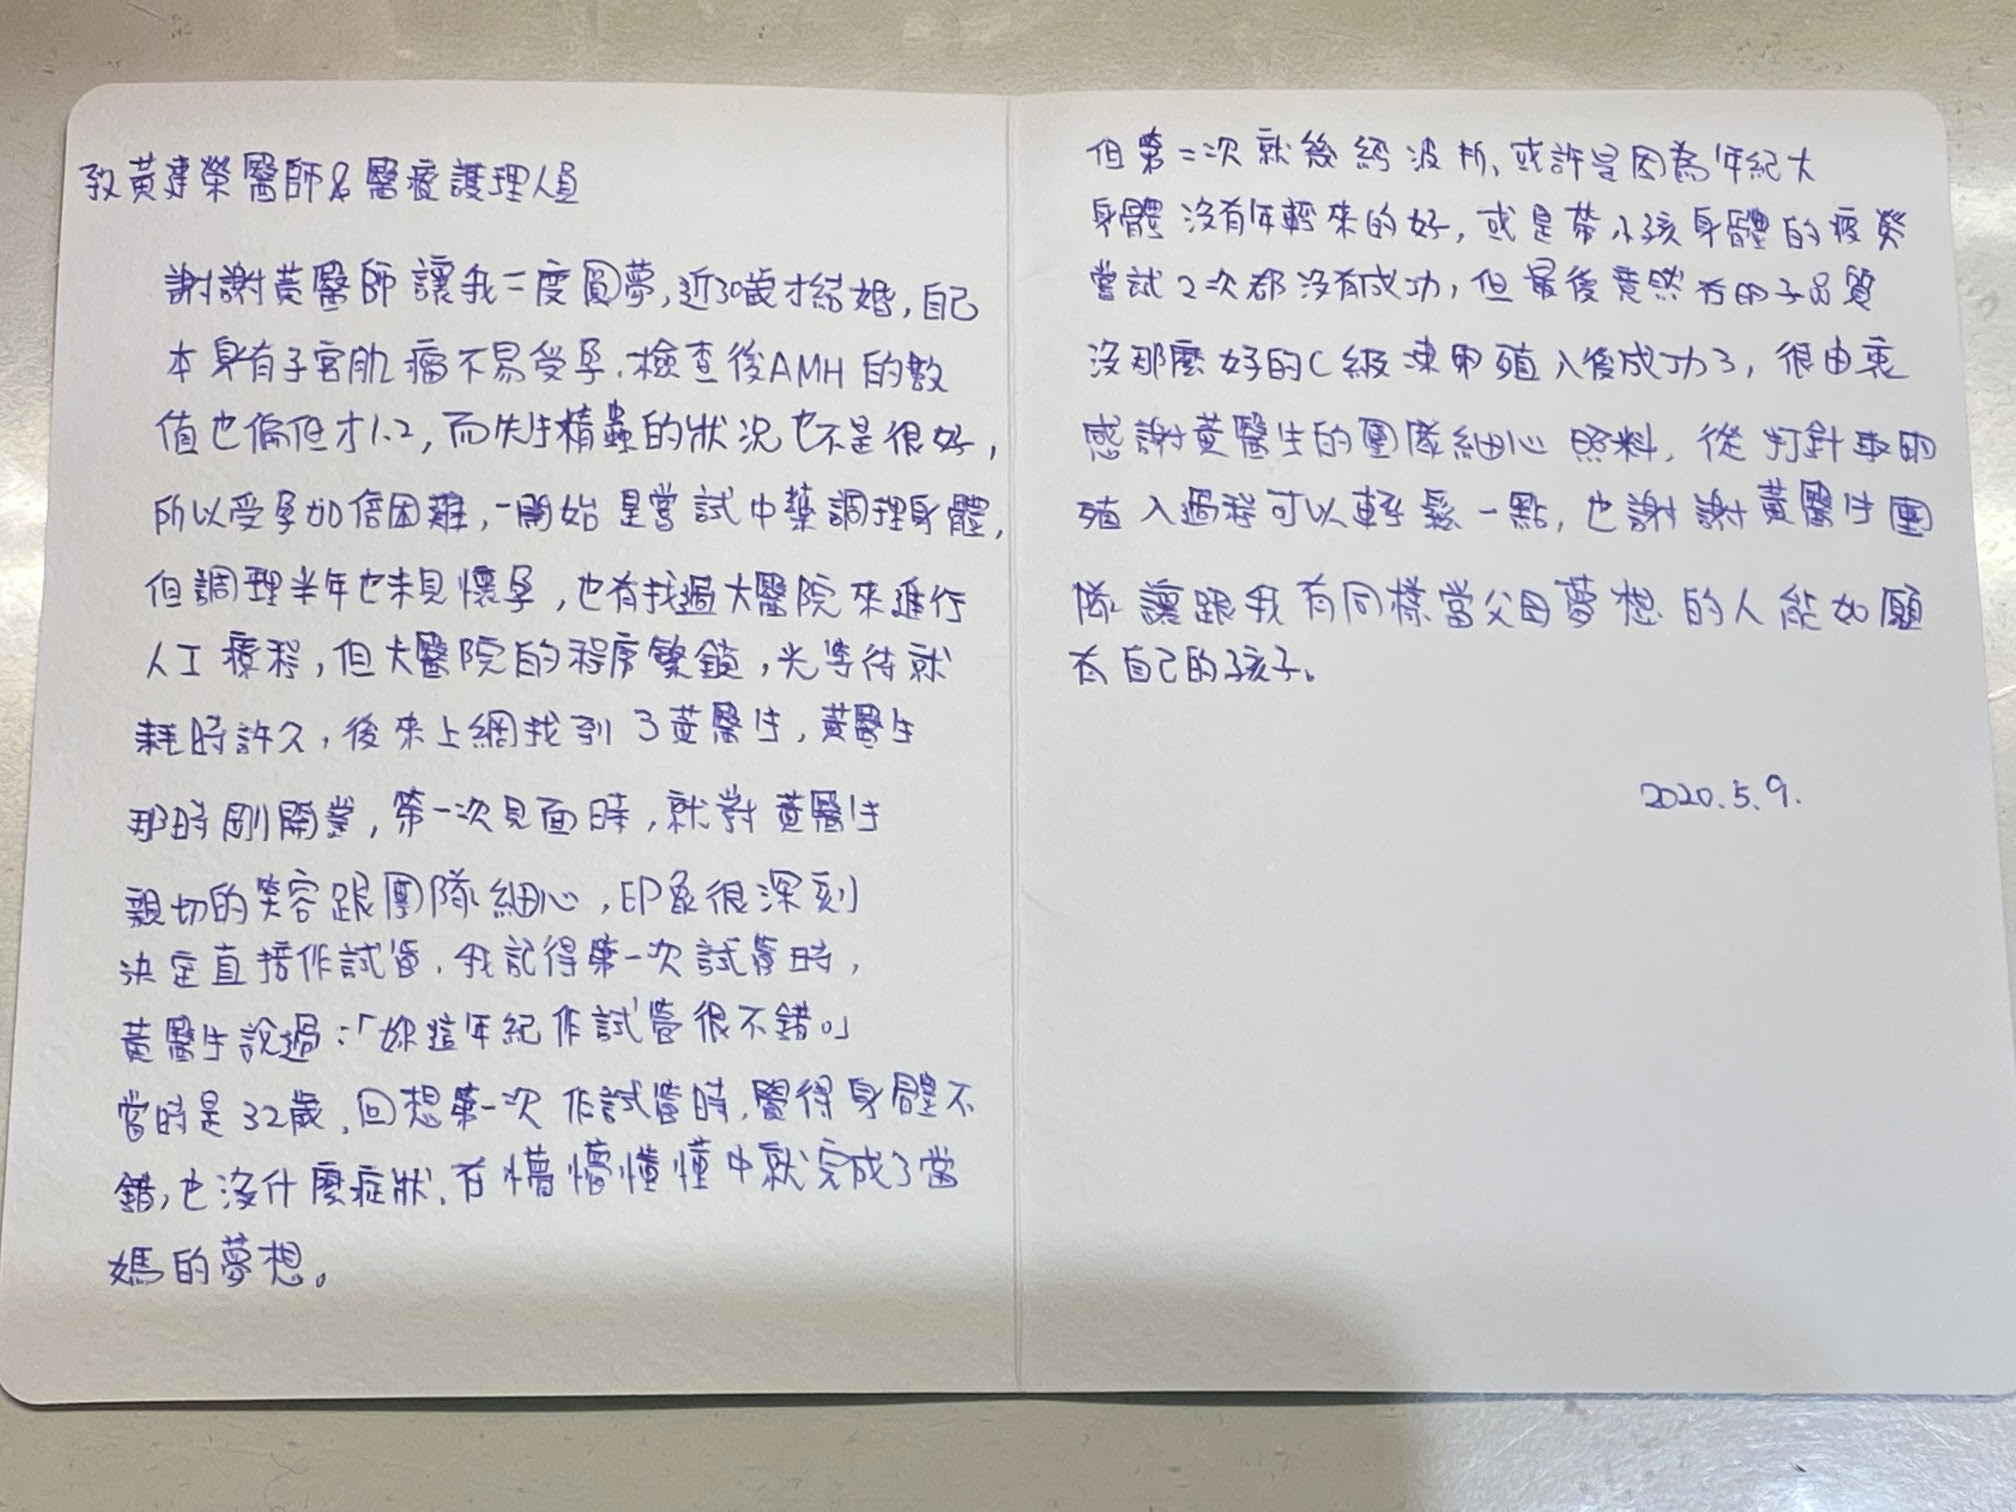 致黃建榮醫師&醫療護理人員
謝謝黃醫師讓我二度圓夢,近30歲才結婚,自己
本身有子宮肌瘤不易受孕.檢查後AMH的數
值也偏低才1.2,而先生精蟲的狀況也不是很好,
所以受孕加倍困難,一開始是嘗試中藥調理身體,
但調理半年也未見懷孕,也有找過大醫院來進行
人工療程,但大醫院的程序繁鎖,光等待就
耗時許久,後來上網找到了黃醫生,黃醫生
那時剛開業,第一次見面時,就對黃醫生
親切的笑容跟團隊細心,印象很深刻
決定直接作試管.我記得第一次試管時,
黃醫生說過:「妳這年紀作試管很不錯。」
當時是32歲,回想第一次作試管時,覺得身體不
錯,也沒什麼症狀,在懵懵懂懂中就完成了當
媽的夢想。
但第二次就幾經波折、或許是因為年紀大
身體沒有年輕來的好,或是帶小孩身體的疲勞
嘗試2次都沒有成功,但最後竟然在卵子品質
沒那麼好的C級凍卵殖入後成功了,很由衷
感謝黃醫生的團隊細心照料,從打針取卵
殖入過程可以輕鬆一點,也謝謝黃醫生團
隊讓跟我有同樣當父母夢想的人能如願
有自己的孩子。
2020.5.9.